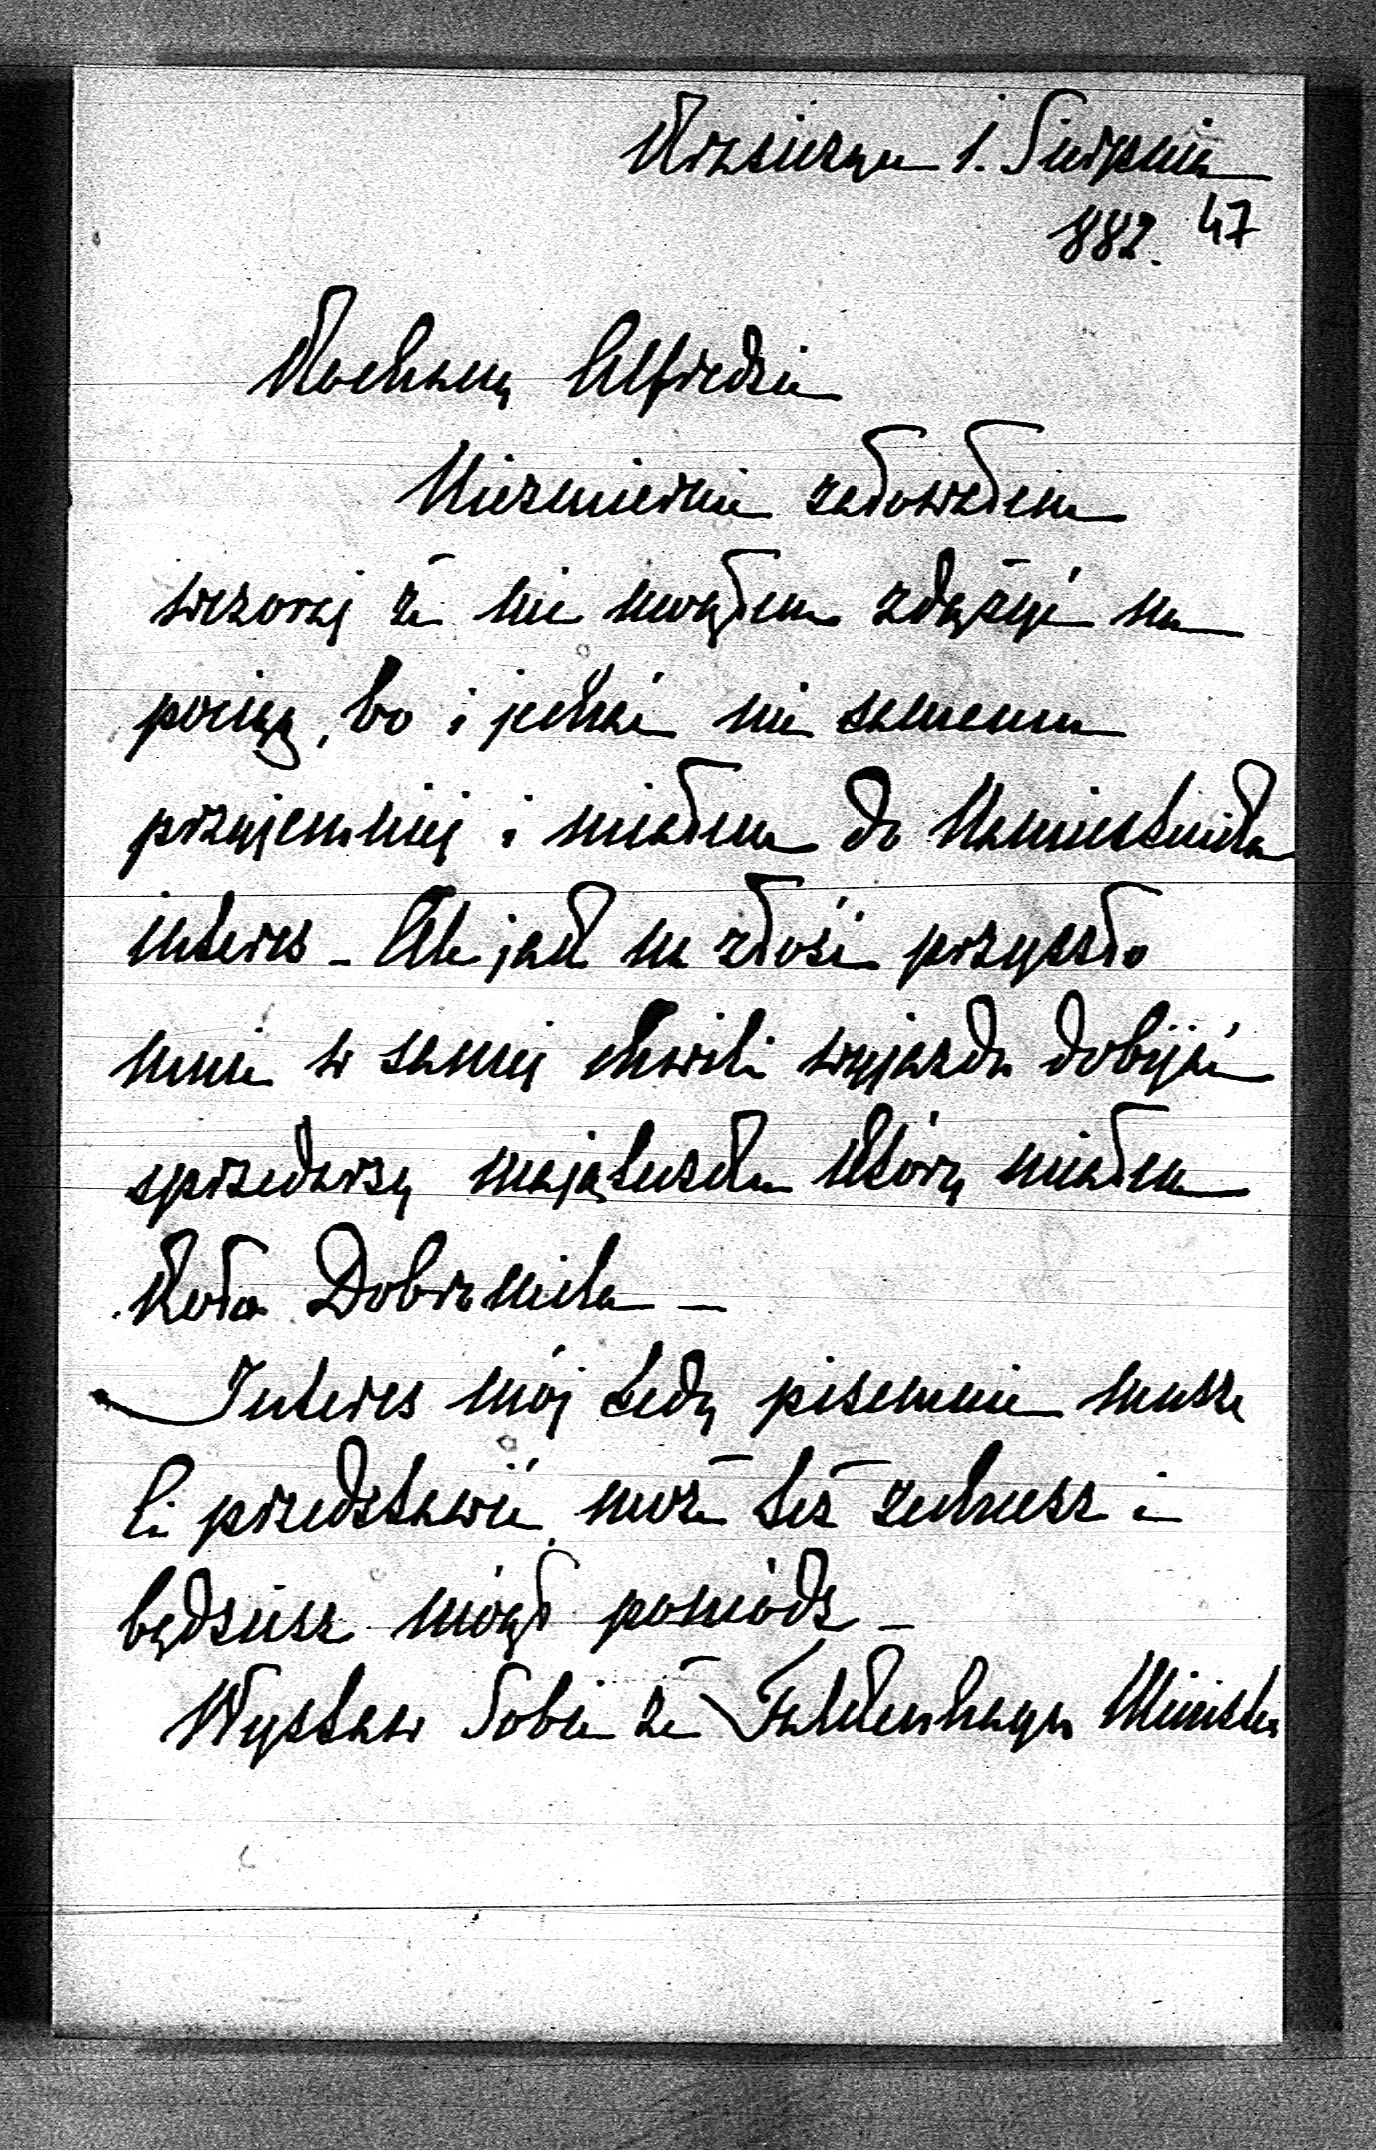 Krasiczyn 1. Sierpnia
882. 47
Kochany Alfredzie
Niezmiernie żałowałem
wczoraj że nie mogłem zdążyć na
pociąg, bo i jechać nie samemu
przyjemniej i miałem do Namiestnika
interes – Ale jak na złość przyszło
mnie w samej chwili wyjazdu dobijać
sprzedarzy mająteczku który miałem
koło Dobromila –
Interes mój tedy pisemnie muszę
Ci przedstawić, może też zechcesz i
będziesz mógł pomódz –
Wystaw Sobie że Falkenhayn Minister